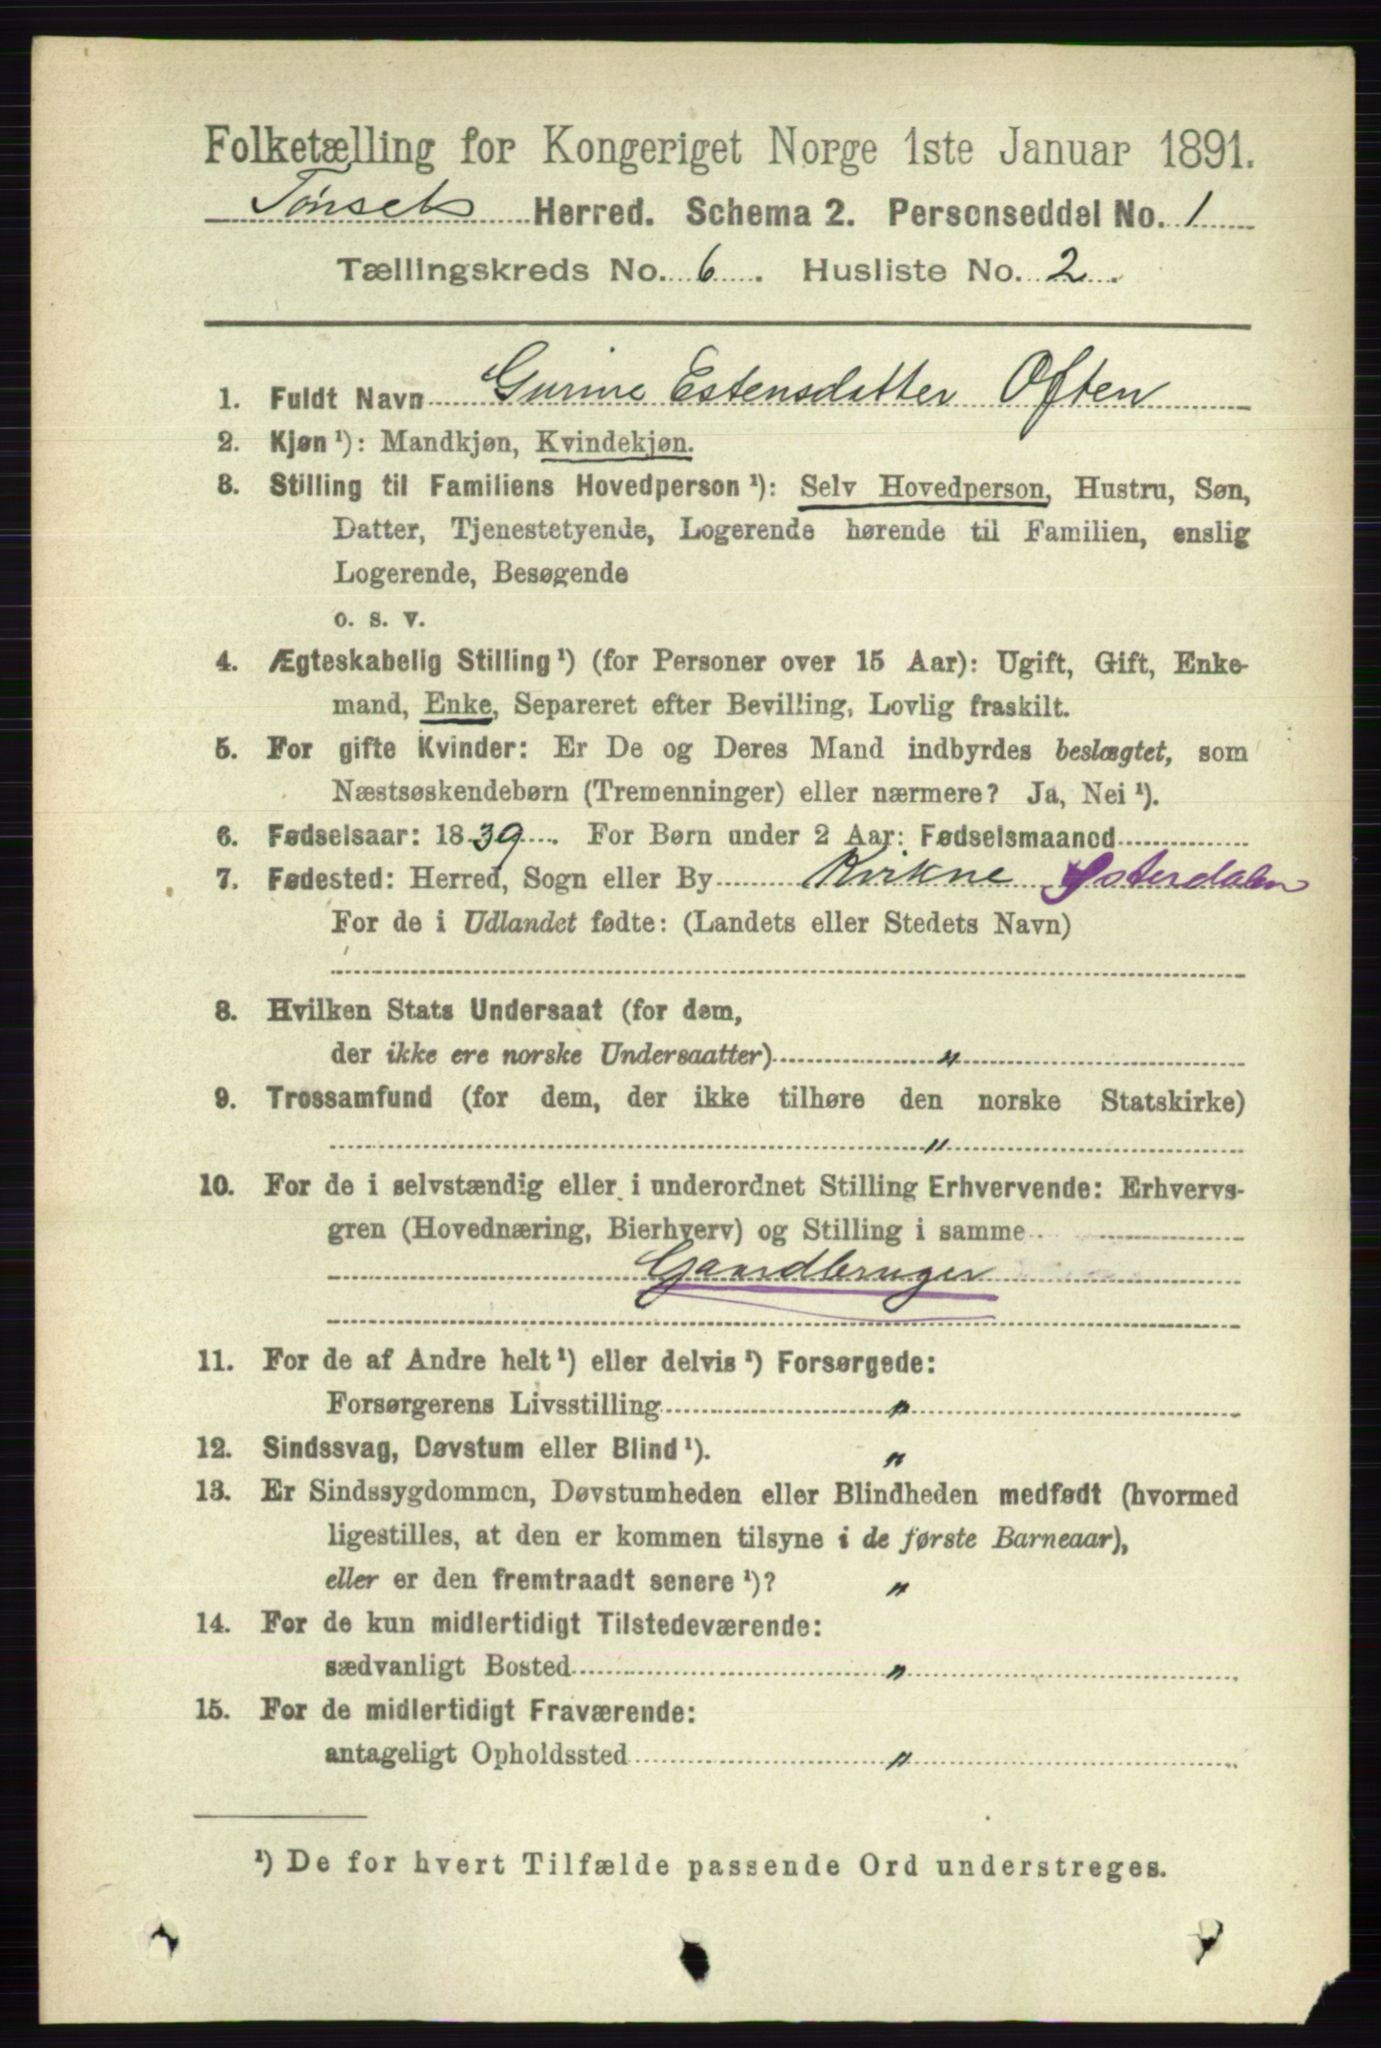 Folketælling for Kongeriget Norge 1ste Januar 1891.
Tønset Herred. Schema 2. Personseddel No. 1
Tællingskreds No. 6. Husliste No. 2.
1. Fuldt Navn Gurine Estensdatter Often
2. Kjøn ¹): Mandkjøn, Kvindekjøn.
3. Stilling til Familiens Hovedperson ¹): Selv Hovedperson, Hustru, Søn,
Datter, Tjenestetyende, Logerende hørende til Familien, enslig
Logerende, Besøgende
o. s. v.
4. Ægteskabelig Stilling ¹) (for Personer over 15 Aar): Ugift, Gift, Enke-
mand, Enke, Separeret efter Bevilling, Lovlig fraskilt.
5. For gifte Kvinder: Er De og Deres Mand indbyrdes beslægtet, som
Næstsøskendebørn (Tremenninger) eller nærmere? Ja, Nei ¹).
6. Fødselsaar: 1839. For Børn under 2 Aar: Fødselsmaaned
7. Fødested: Herred, Sogn eller By Kvikne Østerdalen
For de i Udlandet fødte: (Landets eller Stedets Navn)
8. Hvilken Stats Undersaat (for dem,
der ikke ere norske Undersaatter) "
9. Trossamfund (for dem, der ikke tilhøre den norske Statskirke)
"
10. For de i selvstændig eller i underordnet Stilling Erhvervende: Erhvervs-
gren (Hovednæring, Bierhverv) og Stilling i samme
Gaardbruger
11. For de af Andre helt ¹) eller delvis ¹) Forsørgede:
Forsørgerens Livsstilling "
12. Sindssvag, Døvstum eller Blind ¹). "
13. Er Sindssygdommen, Døvstumheden eller Blindheden medfødt (hvormed
ligestilles, at den er kommen tilsyne i de første Barneaar),
eller er den fremtraadt senere ¹)? "
14. For de kun midlertidigt Tilstedeværende:
sædvanligt Bosted "
15. For de midlertidigt Fraværende:
antageligt Opholdssted "
¹) De for hvert Tilfælde passende Ord understreges.